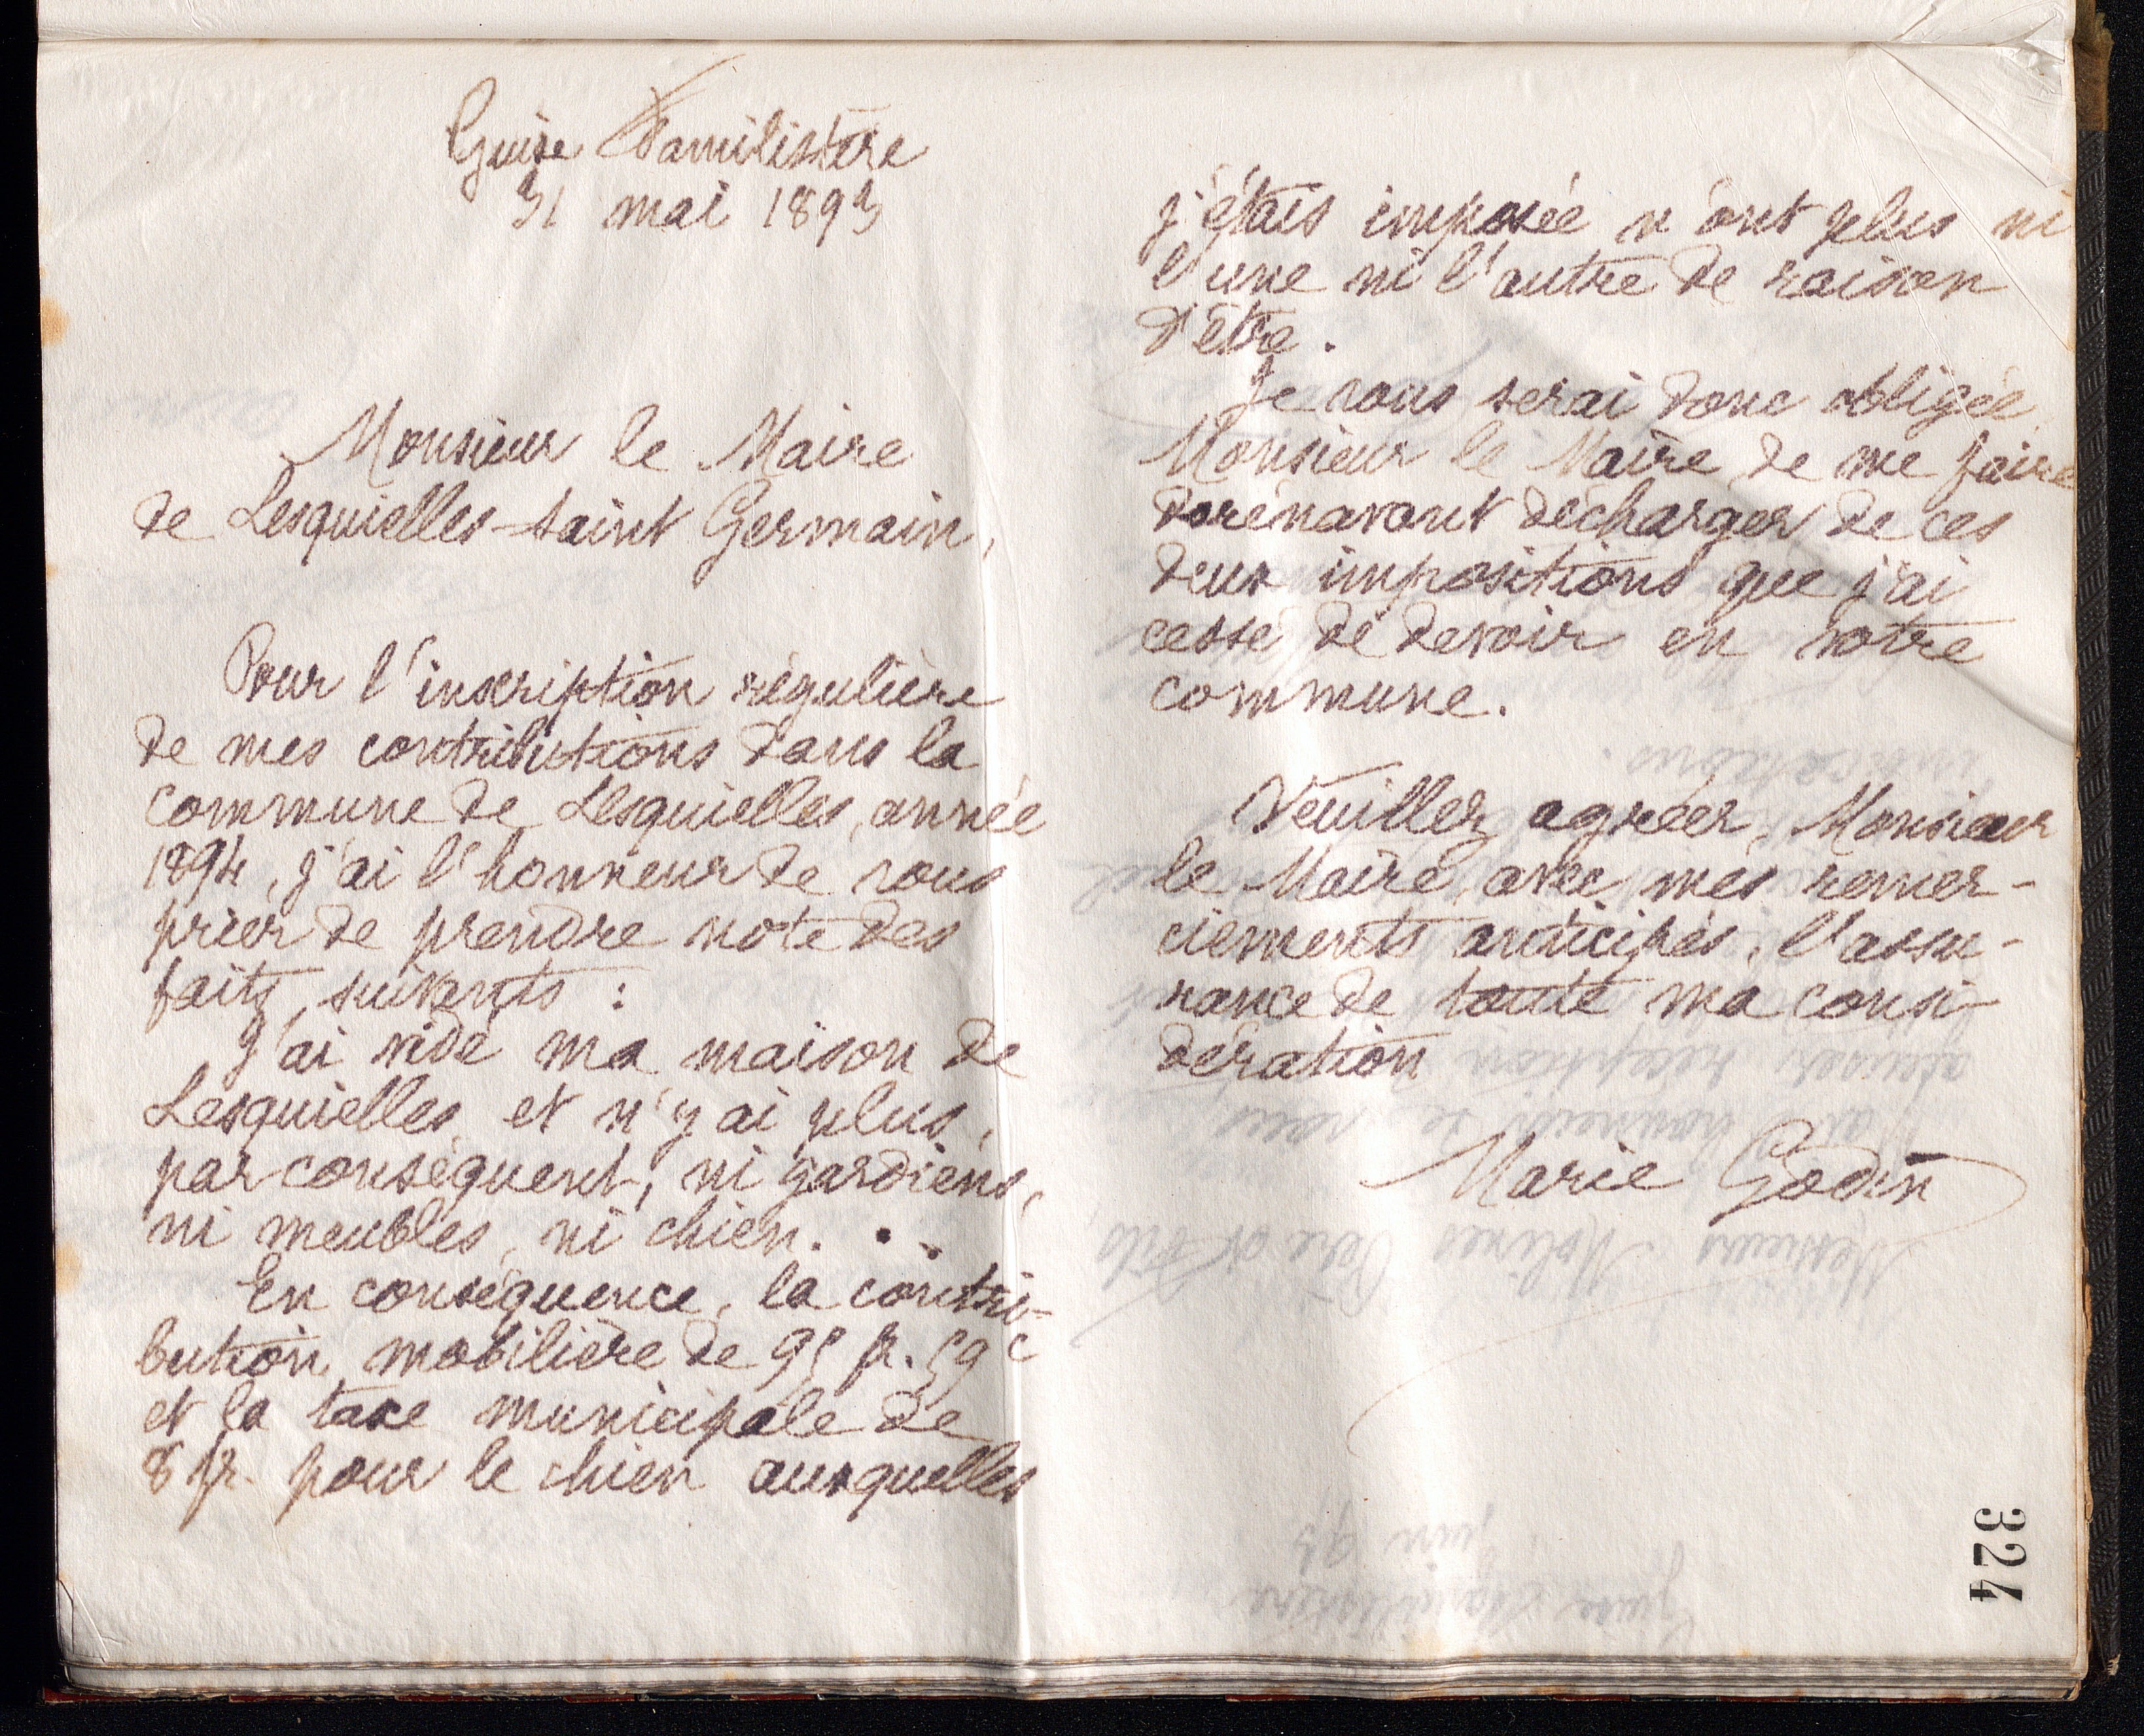 Guise Familistère
31 mai 1893
Monsieur le Maire
de Lesquielles-saint Germain,
Pour l'inscription régulière
de mes contributions dans la
commune de Lesquielles, année
1894, j'ai l'honneur de vous
prier de prendre note des
faits suivants :
J'ai vidé ma maison de
Lesquielles et n'y ai plus,
par conséquent, ni gardiens,
ni meubles, ni chien.
En conséquence, la contri-
bution mobilière de 95 fr. 59 c
et la taxe municipale de
8 fr. pour le chien auxquelles
j'étais imposée n'ont plus ni
l'une ni l'autre de raison
d'être.
Je vous serai donc obligée,
Monsieur le Maire, de me faire
dorénavant décharger de ces
deux impositions que j'ai
cessé de devoir en votre
commune.
Veuillez agréer, Monsieur
le Maire, avec mes remer-
ciements anticipés, l'assu-
rance de toute ma consi-
dération
Marie Godin
324